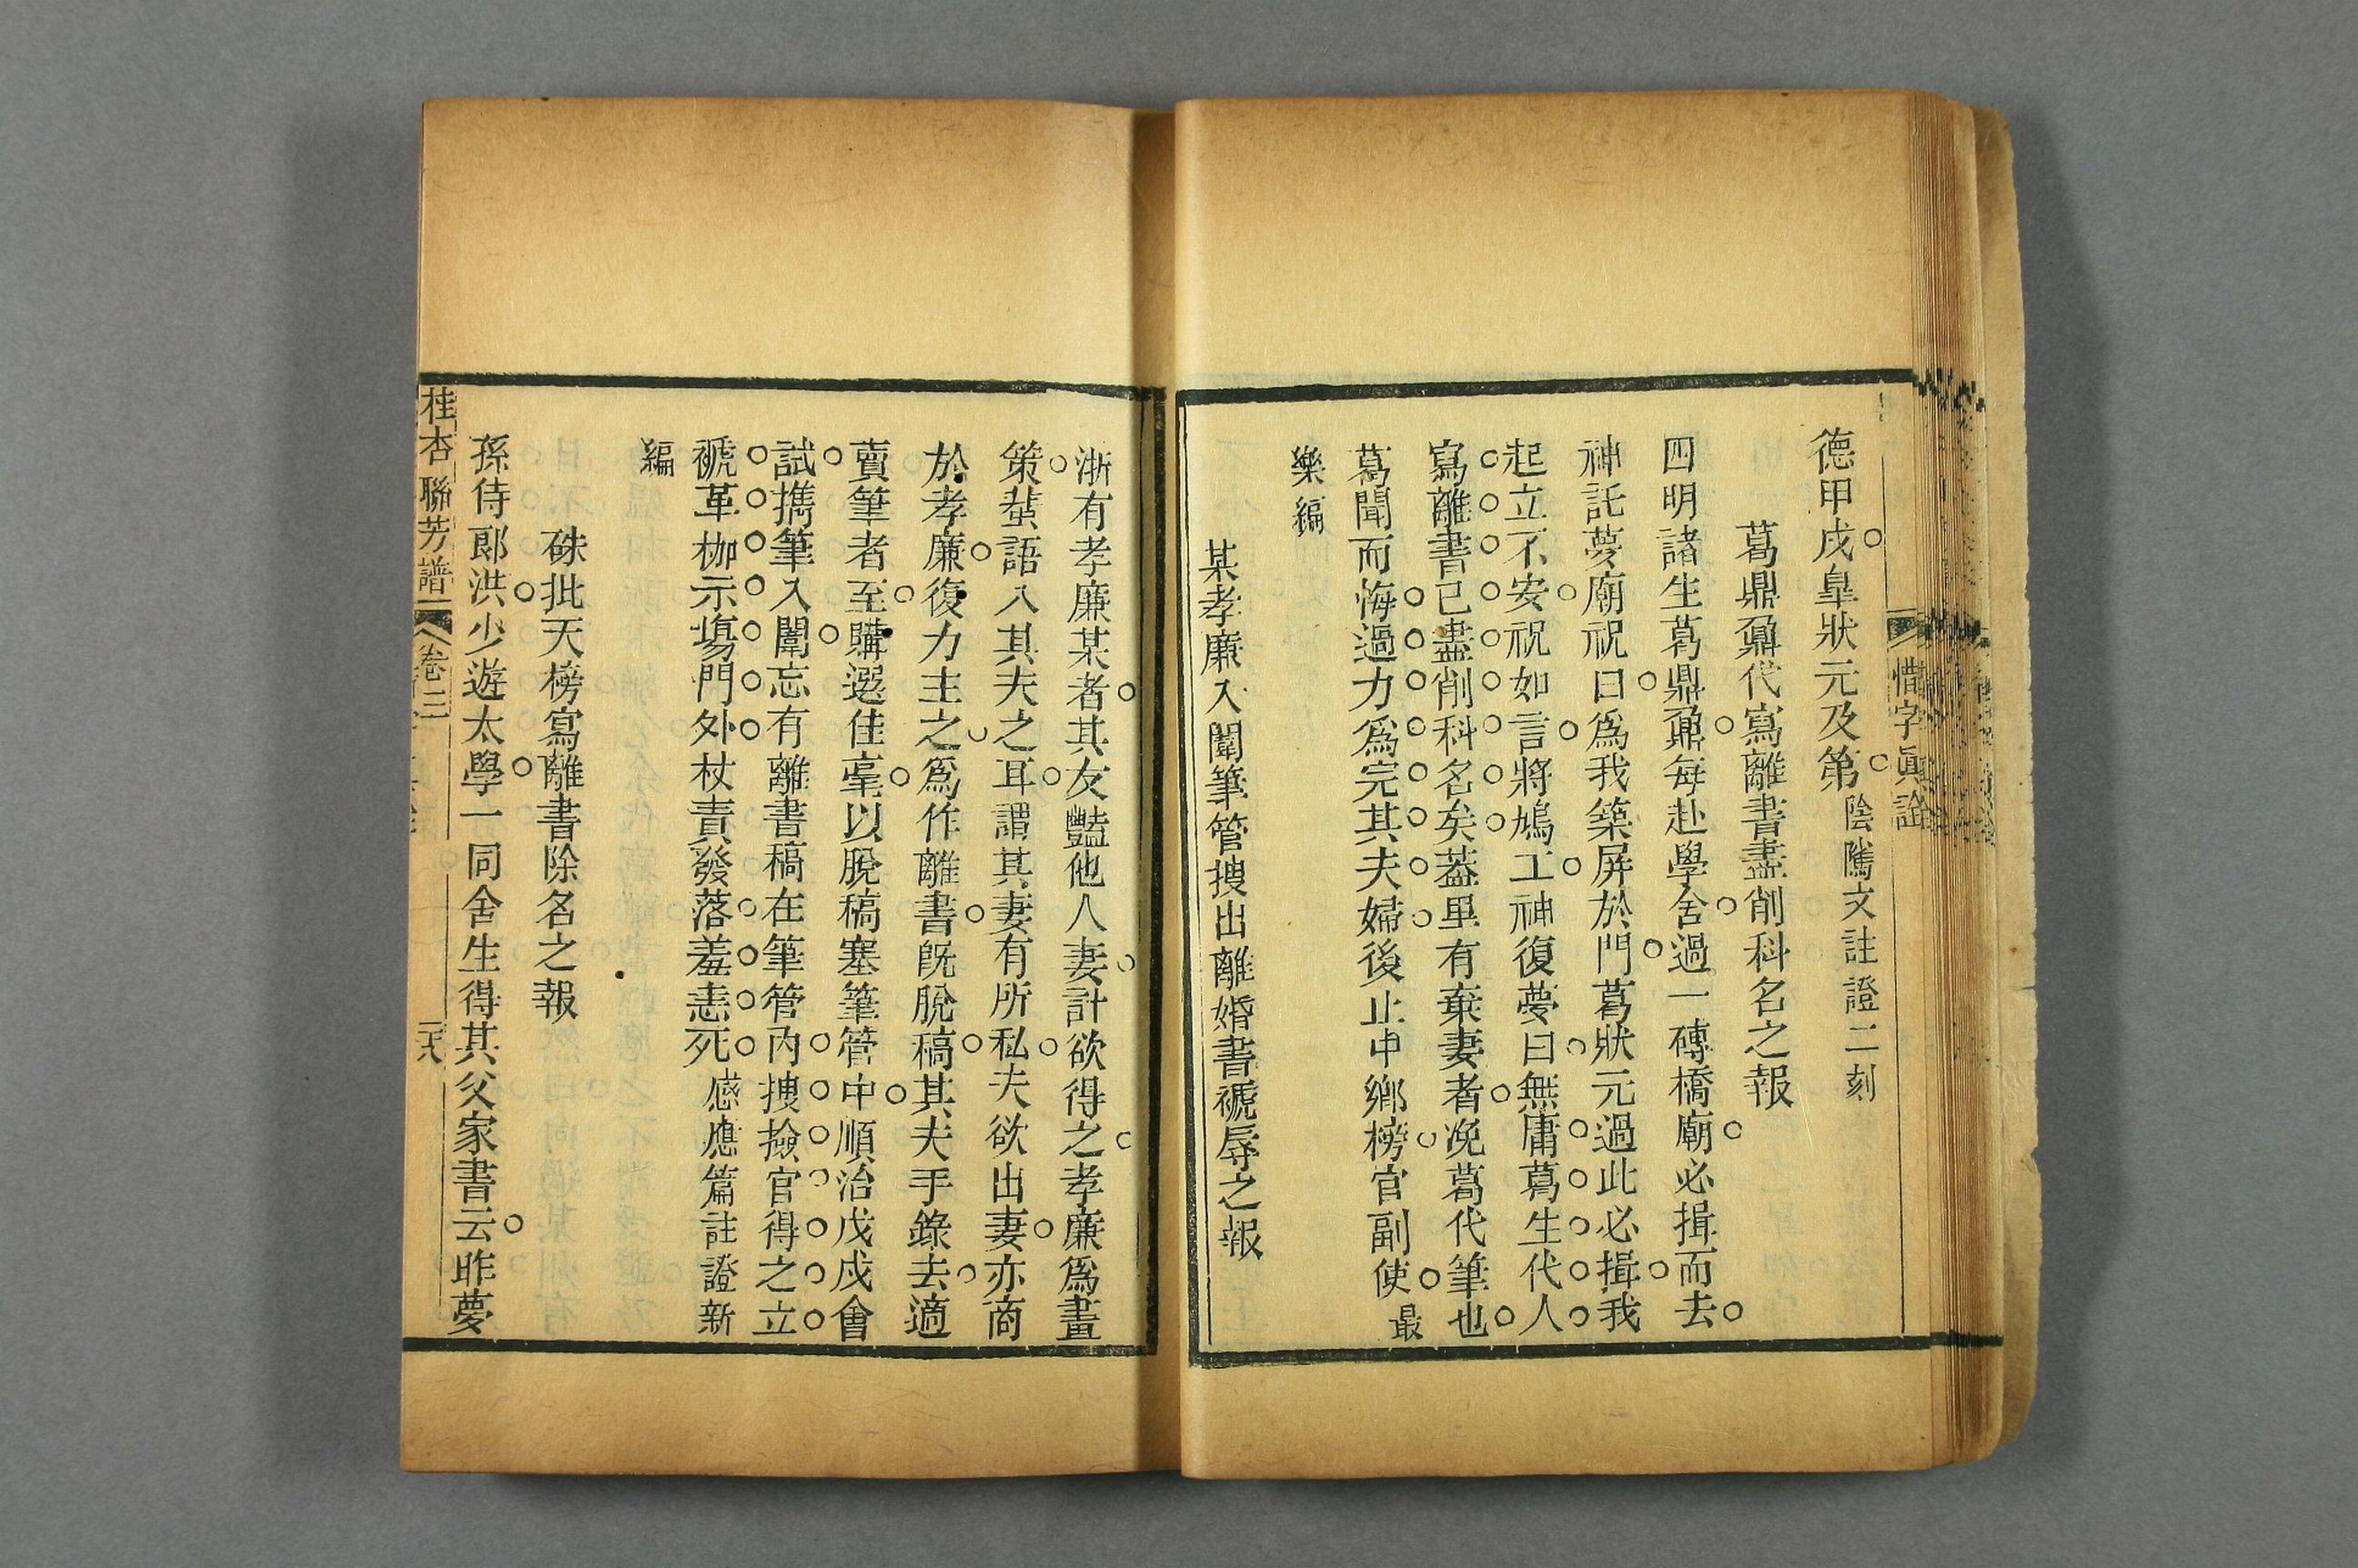 惜字眞詮
德甲戌臯狀元及第陰隲文註證二刻
葛鼎鼐代寫離書盡削科名之報
四明諸生葛鼎鼐每赴學舍過一磚橋廟必揖而去
神託夢廟祝曰爲我築屏於門葛狀元過此必揖我
起立不安祝如言將鳩工神復夢曰無庸葛生代人
寫離書已盡削科名矣葢里有棄妻者浼葛代筆也
葛聞而悔過力爲完其夫婦後止中鄉榜官副使最
樂編
某孝廉入闈筆管搜出離婚書褫辱之報
浙有孝廉某者其友豔他人妻計欲得之孝廉爲畫
策蜚語入其夫之耳謂其妻有所私夫欲出妻亦商
於孝廉復力主之爲作離書既脫稿其夫手錄去適
賣筆者至購選佳毫以脫稿塞筆管中順治戊戌會
試攜筆入闈忘有離書稿在筆管內搜撿官得之立
褫革枷示塲門外杖責發落羞恚死感應篇註證新
編
硃批天榜寫離書除名之報
孫侍郞洪少遊太學一同舍生得其父家書云昨夢
桂杏聯芳譜 卷三